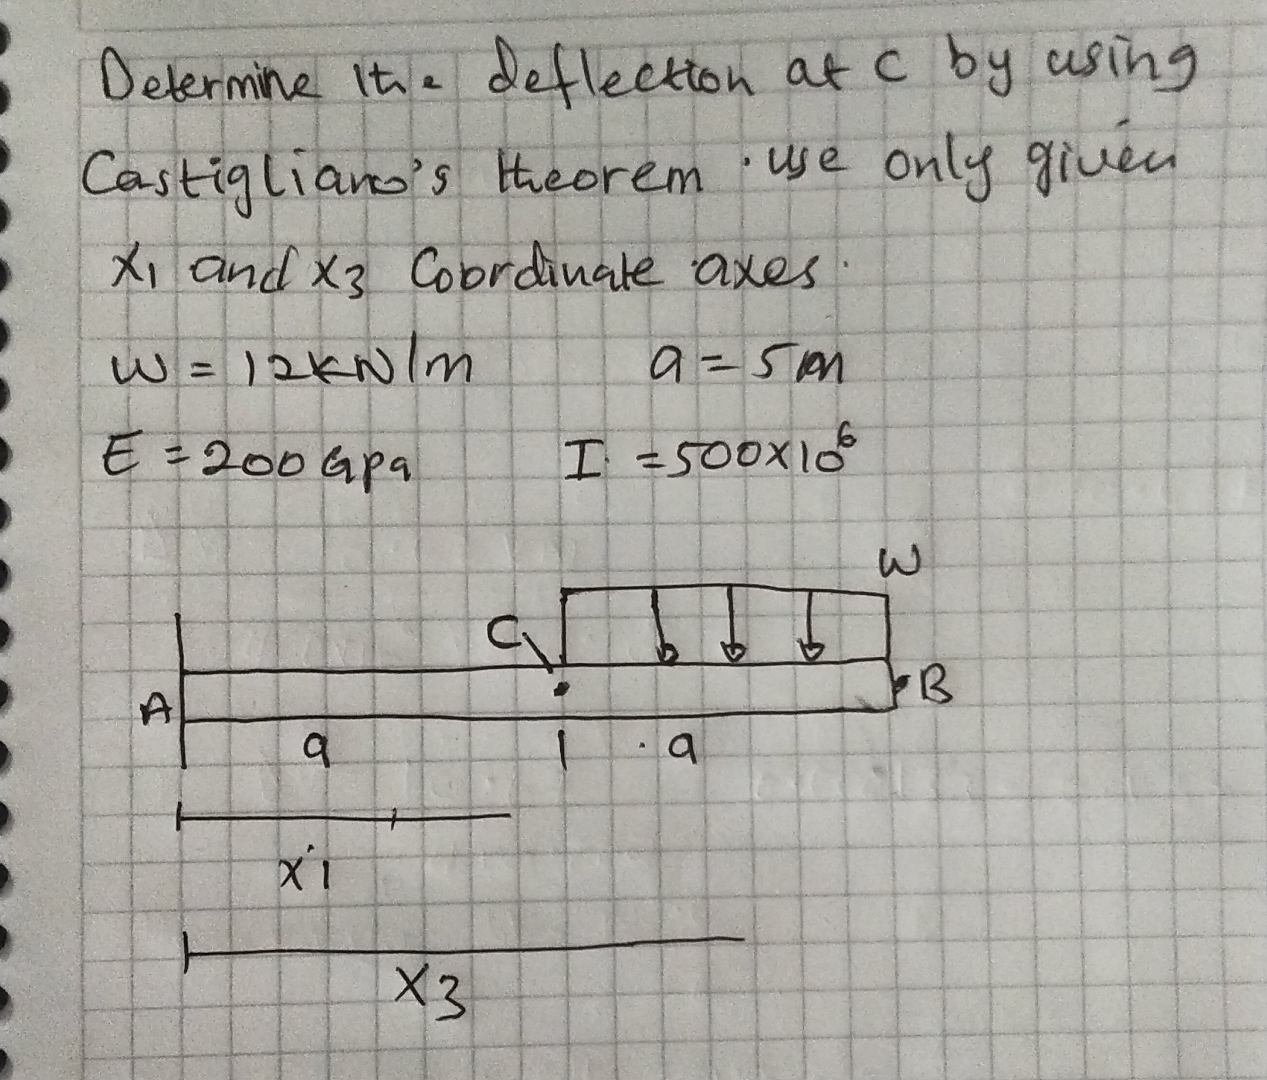 Determine the deflection at C by using
Castigliano's theorem. use only given
x1 and x3 Coordinate axes.
W = 12kN/m a = 5m
E = 200 Gpa I = 500x10^6
W
C
A B
a a
x1
x3